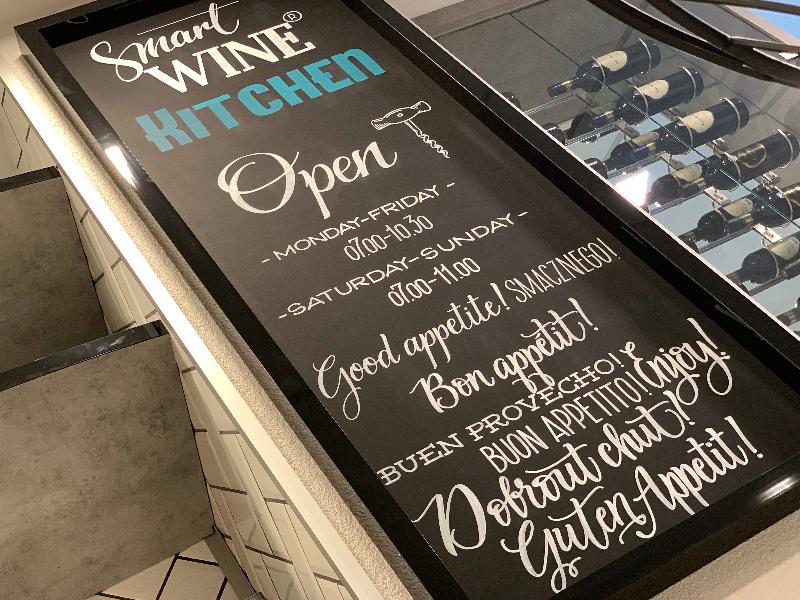 Smart
WINE®
KITCHEN
Open
- MONDAY-FRIDAY -
07.00-10.30
- SATURDAY-SUNDAY -
07.00-11.00
Good appetite! SMACZNEGO!
Bon appétit!
BUEN PROVECHO!
BUON APPETITO! Enjoy!
Dobrout chut!
Guten Appetit!